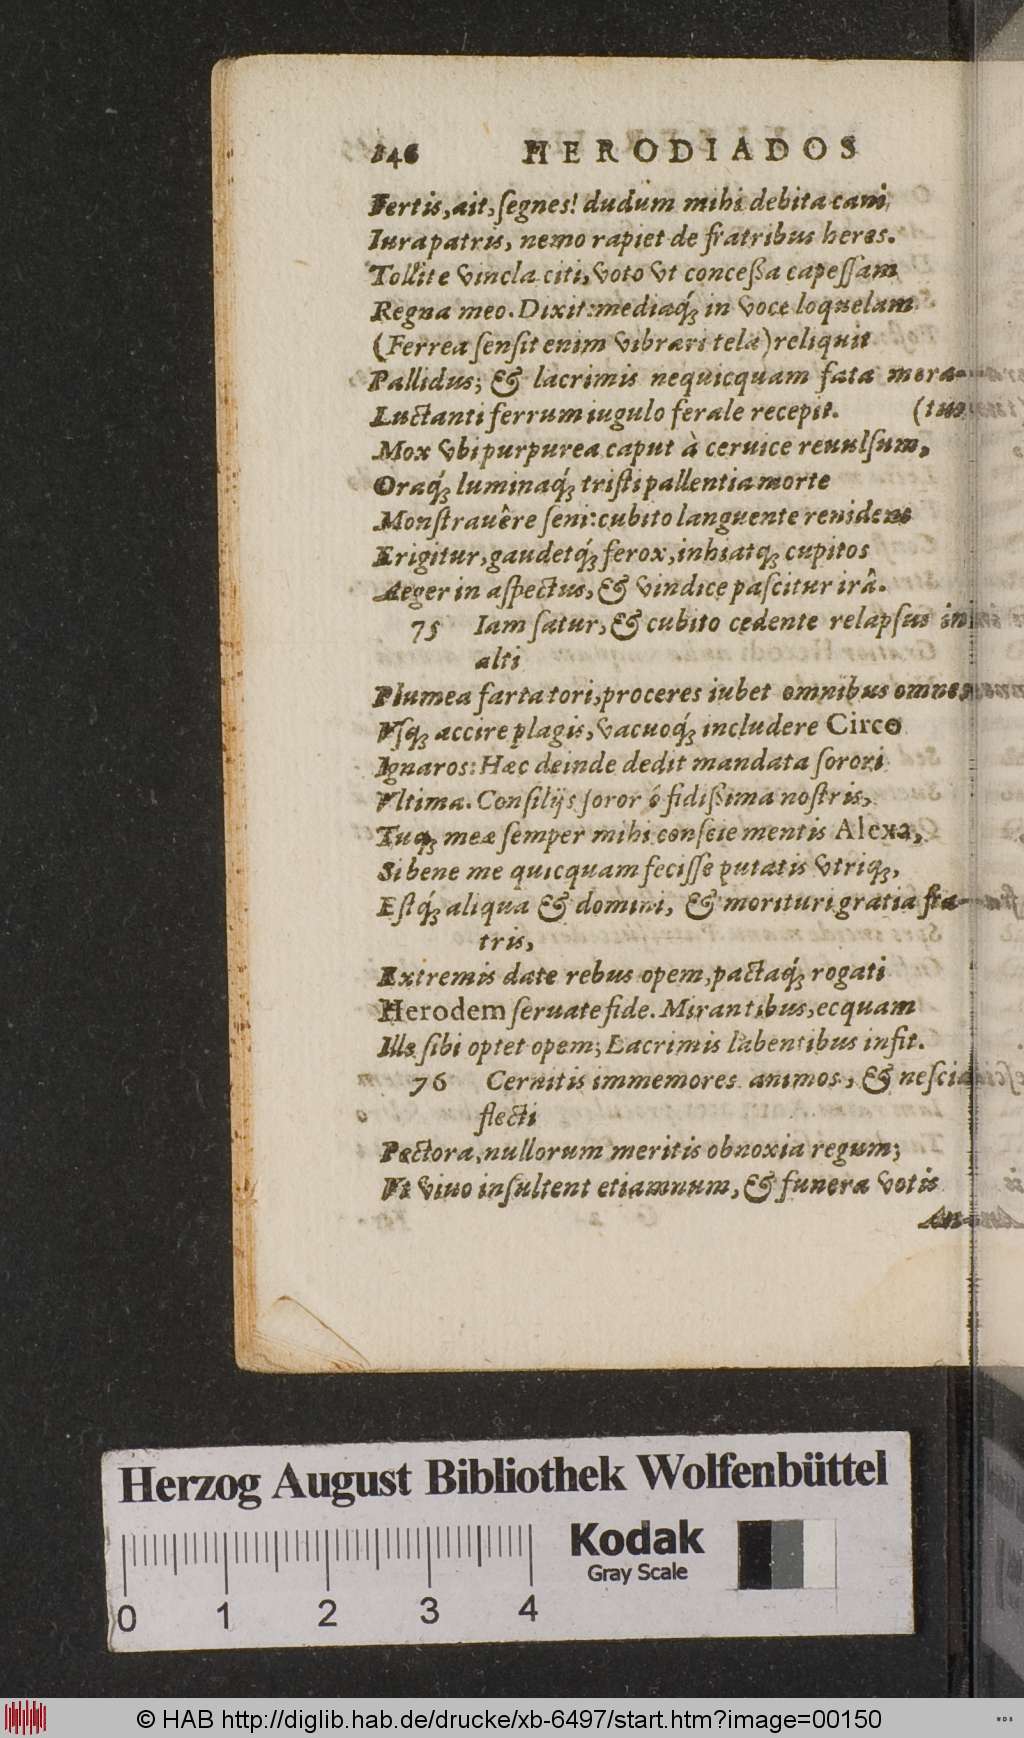 146 HERODIADOS
Fertis, ait, ſegnes! dudum mihi debita cani
Iura patris, nemo rapiet de fratribus heres.
Tollite vincla citi, voto vt conceßa capeſſam
Regna meo. Dixit: mediaq́ꝫ in voce loquelam
(Ferrea ſenſit enim vibrari tela) reliquit
Pallidus; & lacrimis nequicquam fata mora-
Luctanti ferrum iugulo ferale recepit. (tus
Mox vbi purpurea caput à ceruice reuulſum,
Oraq́ꝫ luminaq́ꝫ triſti pallentia morte
Monſtrauêre ſeni: cubito languente renidens
Erigitur, gaudetq́ꝫ ferox, inhiatqꝫ cupitos
Aeger in aſpectus, & vindice paſcitur irâ.
75 Iam ſatur, & cubito cedente relapſus in
alti
Plumea farta tori, proceres iubet omnibus omnes
Vſqꝫ accire plagis, vacuoq́ꝫ includere Circo
Ignaros: Hæc deinde dedit mandata ſorori
Vltima. Conſilijs ſoror ô fidißima noſtris,
Tuqꝫ meæ ſemper mihi conſcie mentis Alexa,
Si bene me quicquam feciſſe putatis vtriqꝫ,
Eſtq́ꝫ aliqua & domini, & morituri gratia fra-
tris,
Extremis date rebus opem, pactaq́ꝫ rogati
Herodem ſeruate fide. Mirantibus, ecquam
Ille ſibi optet opem; Lacrimis labentibus infit.
76 Cernitis immemores animos, & neſcia
flecti
Pectora, nullorum meritis obnoxia regum;
Vt viuo inſultent etiamnum, & funera votis
An-
Herzog August Bibliothek Wolfenbüttel
Kodak
Gray Scale
0 1 2 3 4
© HAB http://diglib.hab.de/drucke/xb-6497/start.htm?image=00150